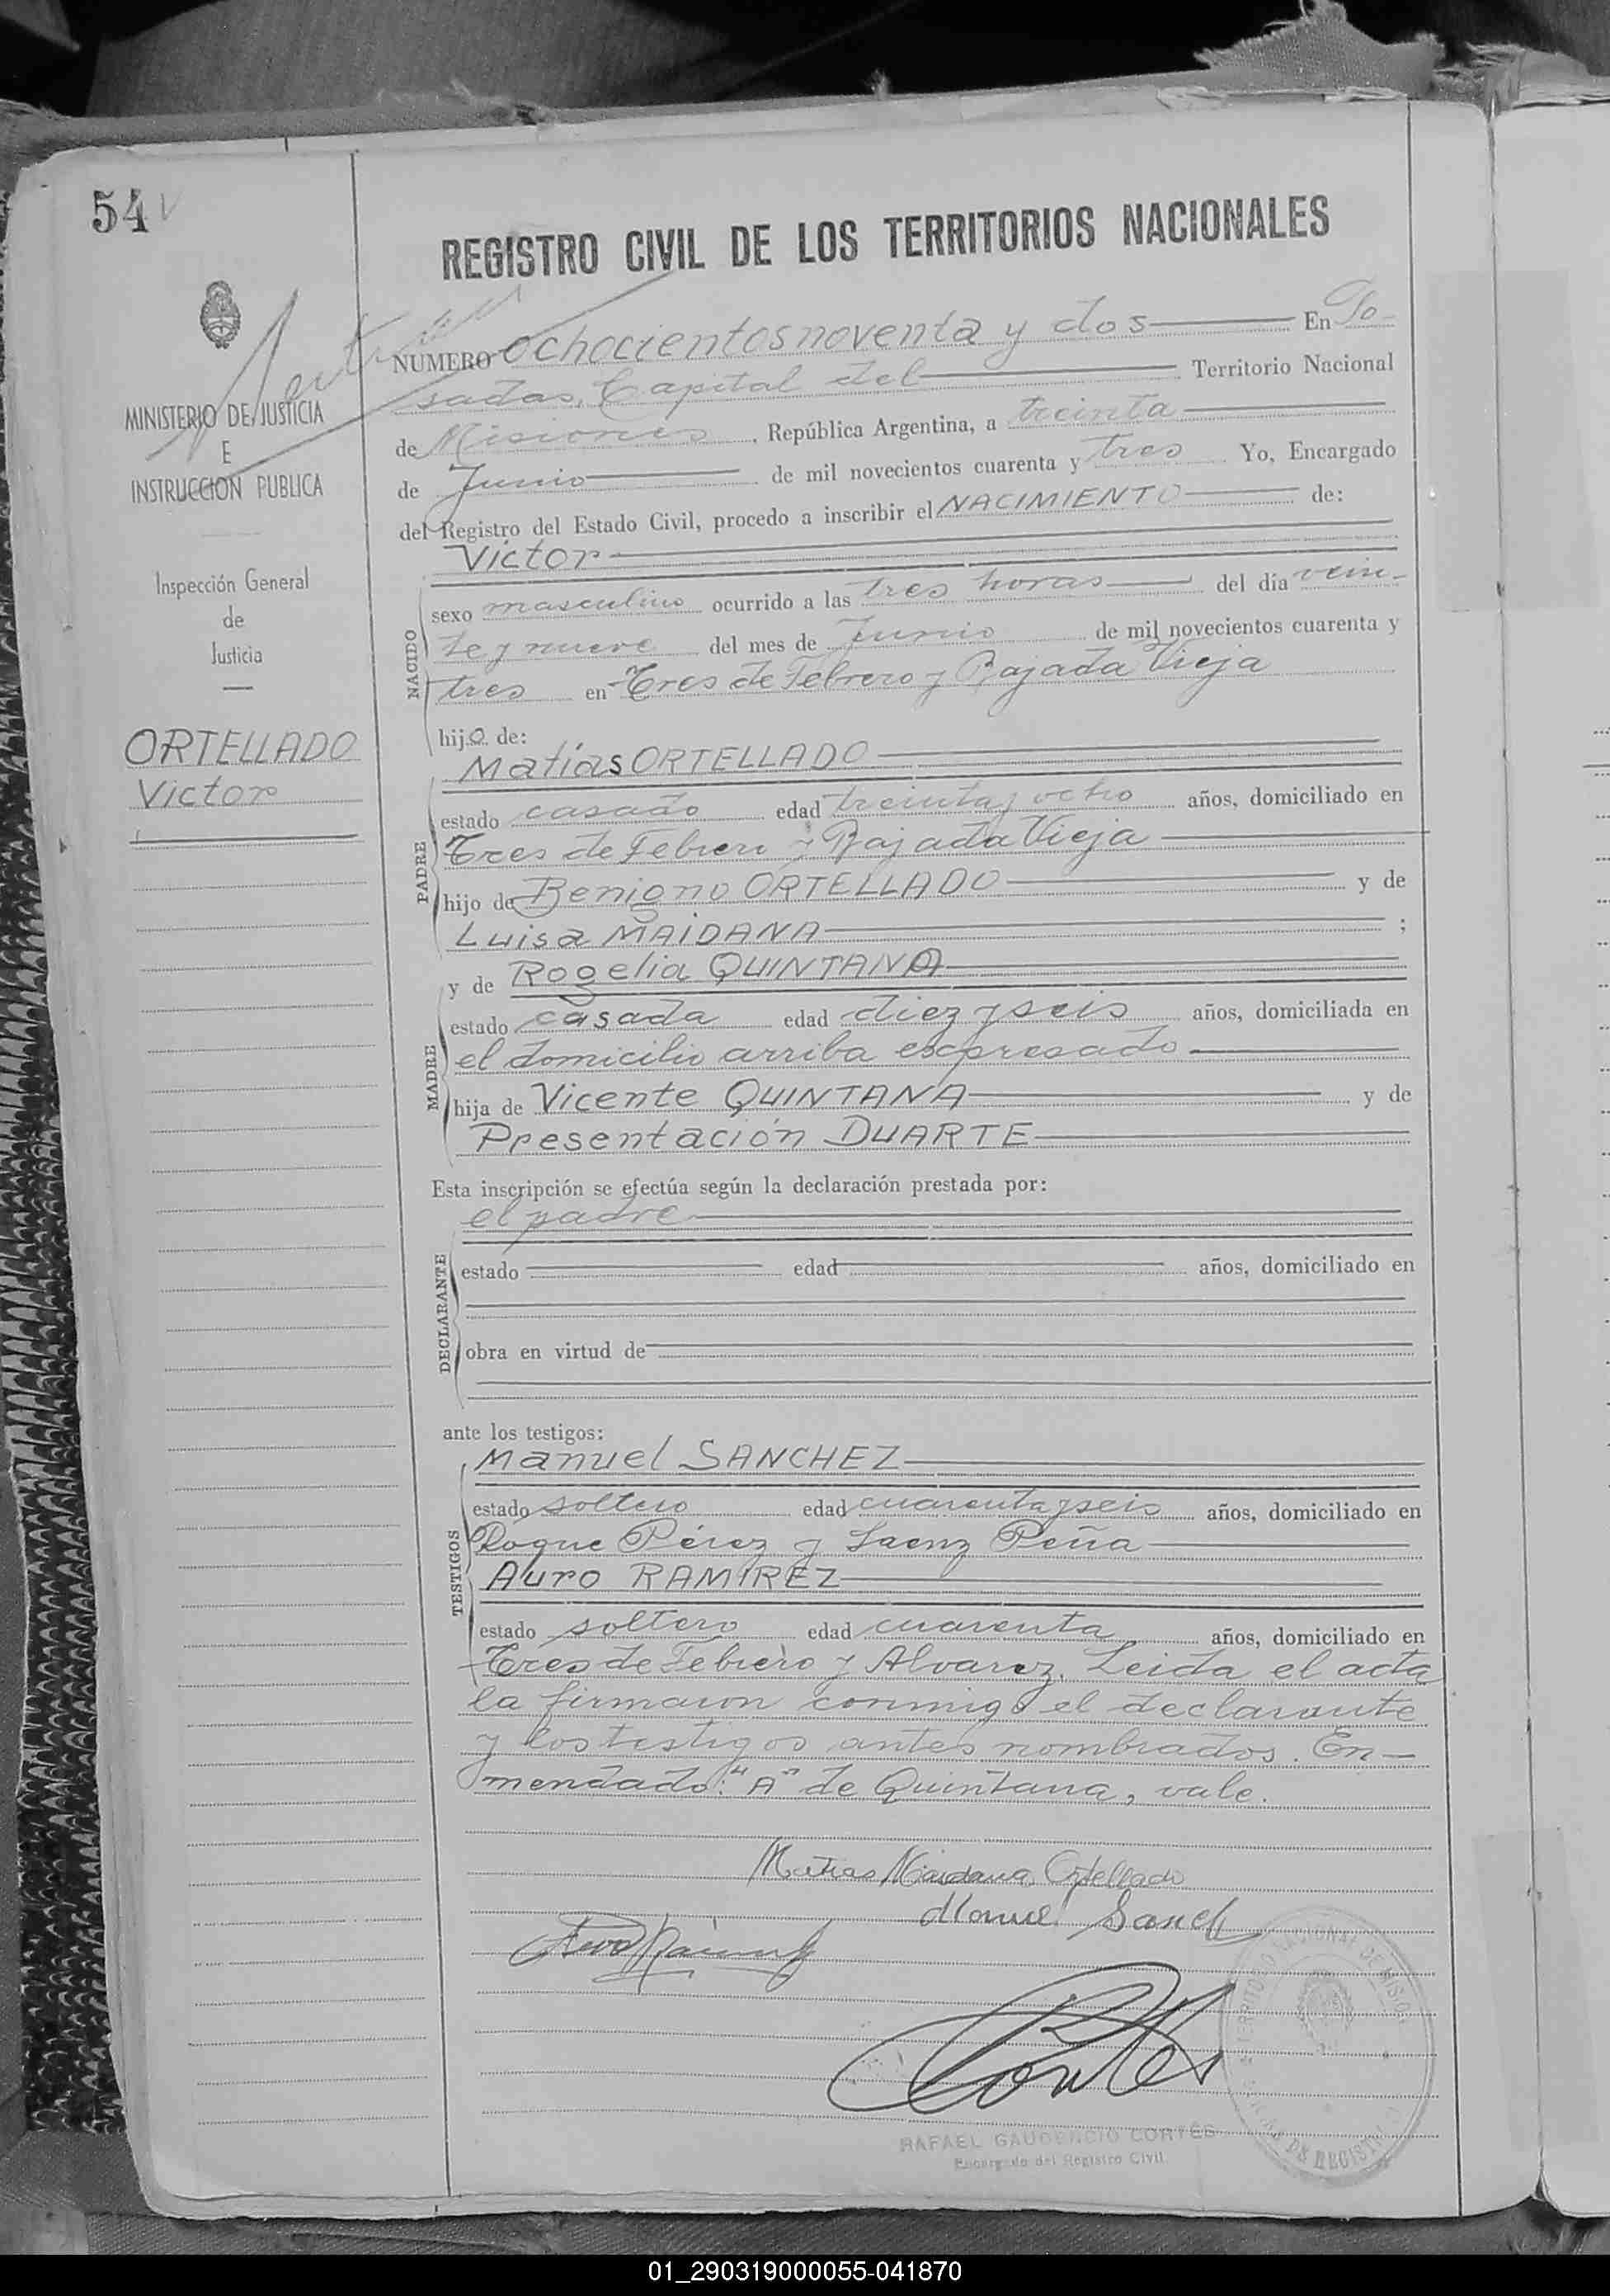 54
REGISTRO CIVIL DE LOS TERRITORIOS NACIONALES
MINISTERIO DE JUSTICIA
E
INSTRUCCION PUBLICA
Inspección General
de
Justicia
ORTELLADO
Victor
NUMERO ochocientos noventa y dos En Po-
sadas, Capital del Territorio Nacional
de Misiones, República Argentina, a treinta
de Junio de mil novecientos cuarenta y tres Yo, Encargado
del Registro del Estado Civil, procedo a inscribir el NACIMIENTO de:
Victor
NACIDO
sexo masculino ocurrido a las tres horas del día vein-
te y nueve del mes de Junio de mil novecientos cuarenta y
tres en Tres de Febrero y Bajada Vieja
hijo de:
Matías ORTELLADO
PADRE
estado casado edad treinta y ocho años, domiciliado en
Tres de Febrero y Bajada Vieja
hijo de Benigno ORTELLADO y de
Luisa MAIDANA ;
y de Rogelia QUINTANA
MADRE
estado casada edad diez y seis años, domiciliada en
el domicilio arriba expresado
hija de Vicente QUINTANA y de
Presentación DUARTE
Esta inscripción se efectúa según la declaración prestada por:
el padre
DECLARANTE
estado edad años, domiciliado en
obra en virtud de
ante los testigos:
Manuel SANCHEZ
TESTIGOS
estado soltero edad cuarenta y seis años, domiciliado en
Roque Pérez y Saenz Peña
Auro RAMIREZ
estado soltero edad cuarenta años, domiciliado en
Tres de Febrero y Alvarez. Leida el acta
la firmaron conmigo el declarante
y los testigos antes nombrados. En-
mendado: "A" de Quintana, vale.
Matias Maidana Ortellado
Manuel Sanch
Cortes
RAFAEL GAUDENCIO CORTÉS
Encargado del Registro Civil
01_290319000055-041870